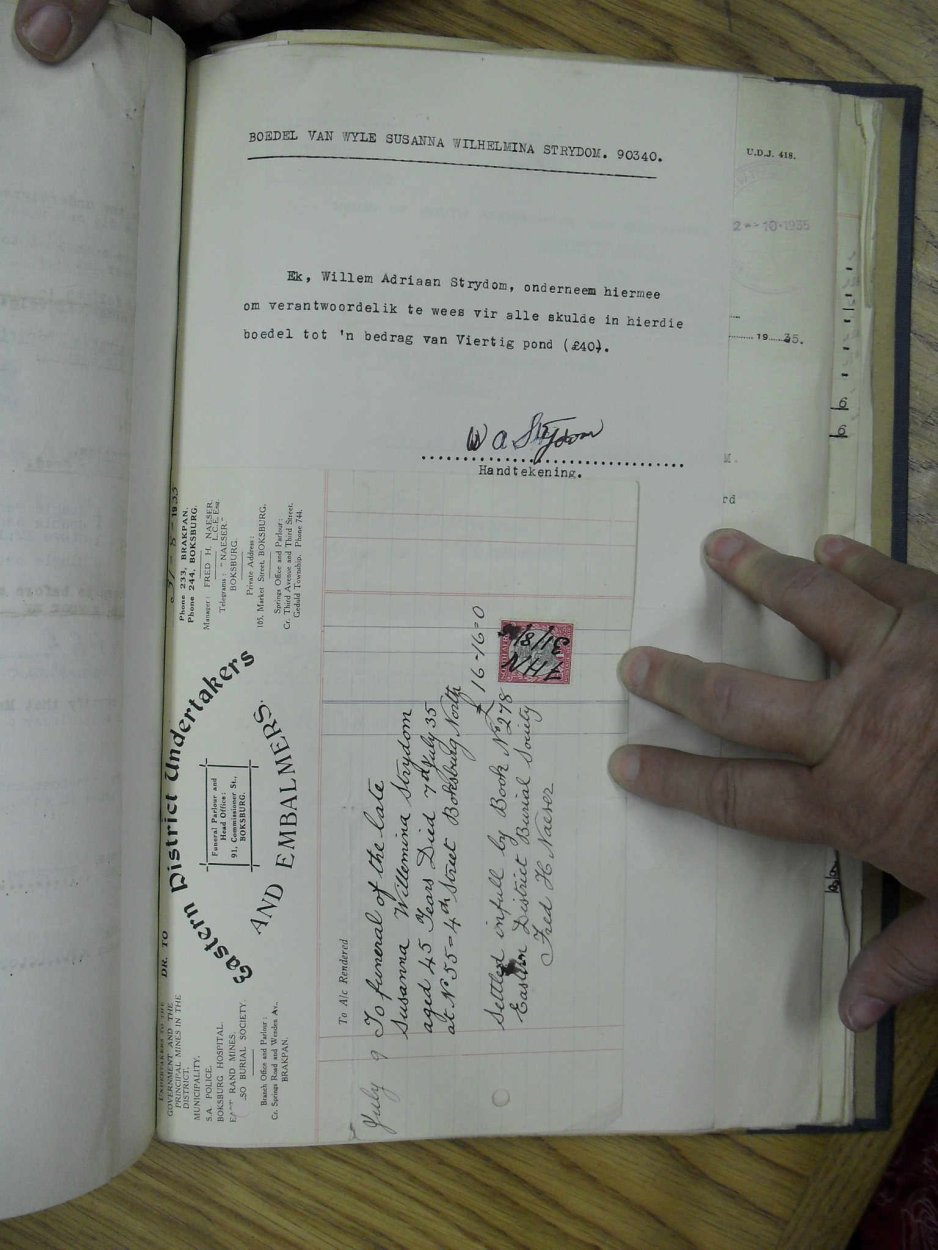 BOEDEL VAN WYLE SUSANNA WILHELMINA STRYDOM. 90340.
Ek, Willem Adriaan Strydom, onderneem hiermee
om verantwoordelik te wees vir alle skulde in hierdie
boedel tot 'n bedrag van Viertig pond (£40).
W A Strydom
Handtekening.
U.D.J. 418.
2 -10-1935
19 35.
6
6
M.
rd
UNDERTAKERS TO THE
GOVERNMENT AND THE
PRINCIPAL MINES IN THE
DISTRICT.
MUNICIPALITY.
S.A. POLICE.
BOKSBURG HOSPITAL.
EAST RAND MINES.
ALSO BURIAL SOCIETY.
Branch Office and Parlour:
Cr. Springs Road and Wenden Av.,
BRAKPAN.
DR. TO
Eastern District Undertakers
AND EMBALMERS.
Funeral Parlour and
Head Office:
91, Commissioner St.,
BOKSBURG.
Phone 233, BRAKPAN.
Phone 244, BOKSBURG.
Manager: FRED H. NAESER,
L.C.E. Eng.
Telegrams: "NAESER"
BOKSBURG.
Private Address:
105, Market Street, BOKSBURG.
Springs Office and Parlour:
Cr. Third Avenue and Third Street,
Geduld Township. Phone 744.
To A/c Rendered
July 9 To funeral of the late
Susanna Willemina Strydom
aged 45 Years Died 7th July 35
at No 55 = 4th Street Boksburg North
£ 16-16=0
Settled in full by Book No 278
Eastern District Burial Society
Fred H Naeser
FHN
31/8/35